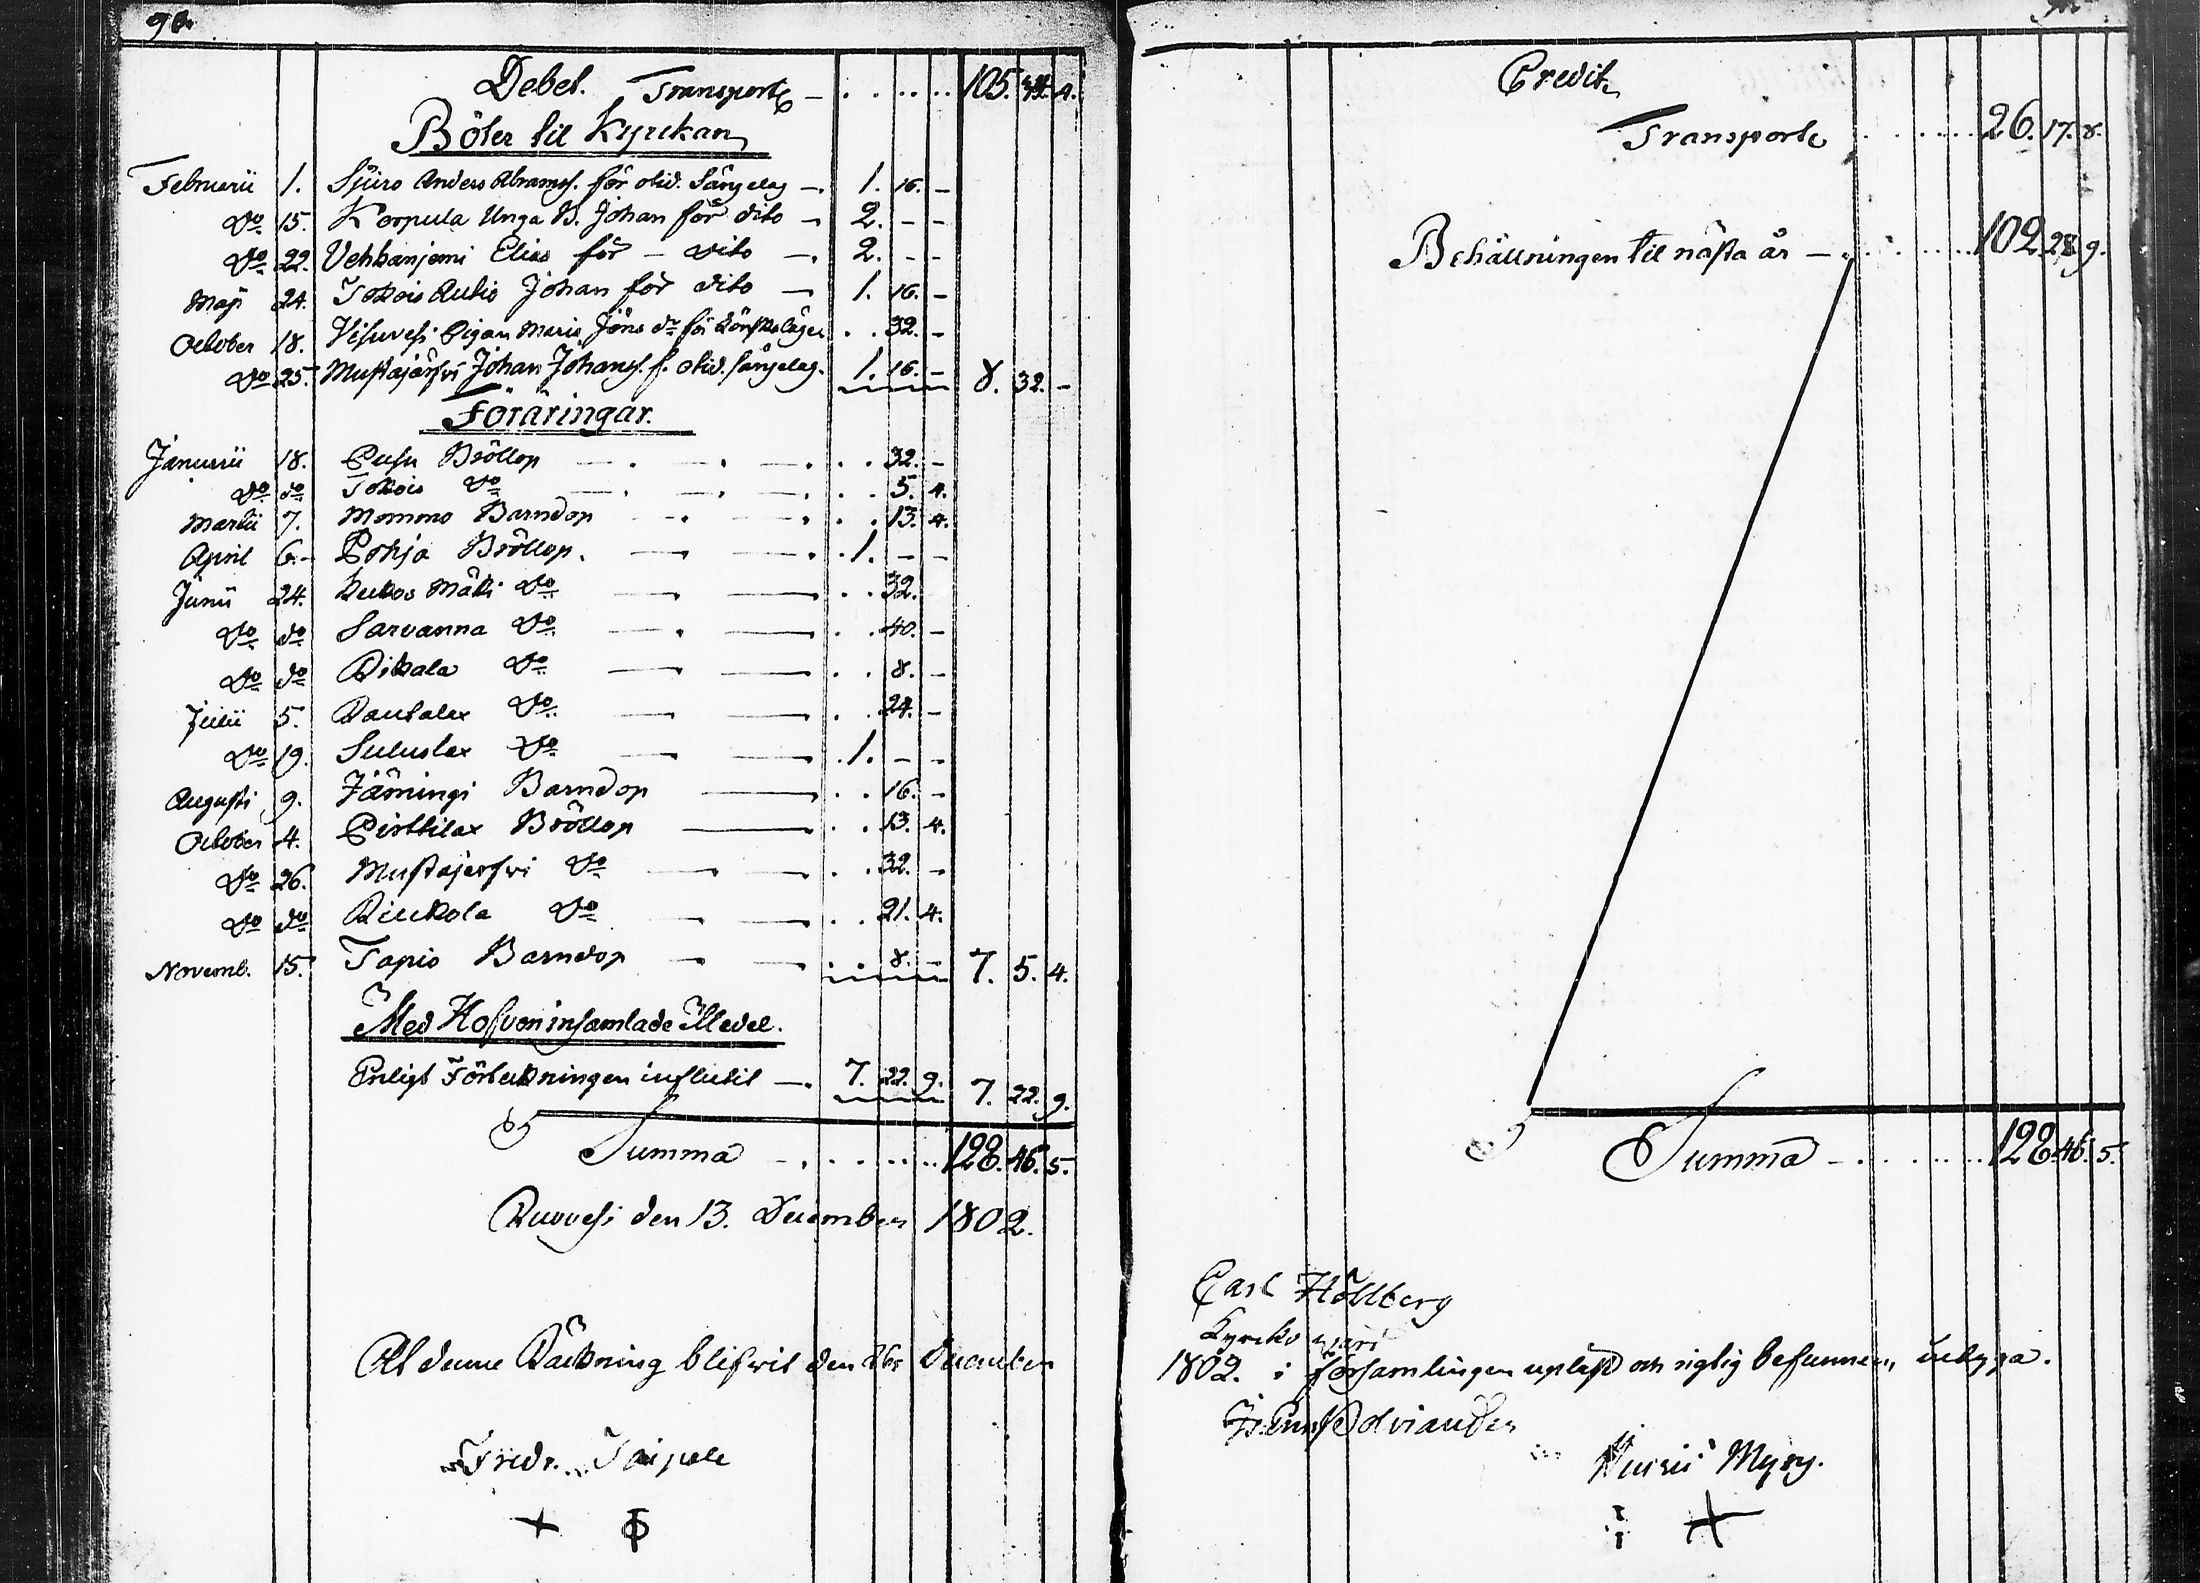 90.
Debet. Transport – . . . . 105. 34. 4.
Böter til Kyrckan
Februarii 1. Sjuro Anders Abramss. för otid. Sängelag – 1. 16. –
Do 15. Korpula Unga B. Johan för dito – 2. – –
Do 22. Vehkanjemi Elias för – dito – 2. – –
Maji 24. Tokois Autio Johan för dito – 1. 16. –
October 18. Visuvesi Pigan Maria Jöns dr för Lönskaläger . . 32. –
Do 25. Mustajärfvi Johan Johanss. f. otid. sängelag. 1. 16. – 8. 32. –
Föräringar.
Januarii 18. Pusu Bröllop – . – . – . . . 32. –
Do do Tokois Do – . – . – . . . 5. 4.
Martii 7. Mommo Barndop – . – . . . 13. 4.
April 6. – Pohja Bröllop. – – . 1. – –
Junii 24. Kukos Mäki Do – – . . 32.
Do do Sarvanna Do – – . . 40. –
Do do Rikala Do – – . . 8. –
Julii 5. Rautalax Do – – . . 24. –
Do 19. Suluslax Do – – . 1. – –
Augusti 9. Jämingi Barndop – . . 16. –
October 4. Pirttilax Bröllop – . . 13. 4.
Do 26. Mustajerfvi Do – – . . 32. –
Do do Riukola Do – – . . 21. 4.
Novemb. 15. Tapio Barndop – – . . 8. – 7. 5. 4.
Med Hofven insamlade Medel.
Enligt Förteckningen influtit – 7. 22. 9. 7. 22. 9.
Summa – . . . . . . 128. 46. 5.
Ruovesi den 13. December 1802.
At denne Räckning blifwit den 26 December
Fredr. Taipale
Credit
Transport . . . . . . 26. 17. 8.
Behållningen til nästa år – . . . . . 102. 28. 9.
Summa – . . . . . . 128. 46. 5.
Carl Hållberg
Kyrckowärd
1802. i församlingen upläst och rigtig befunnen, intyga.
Polviander
Myry.